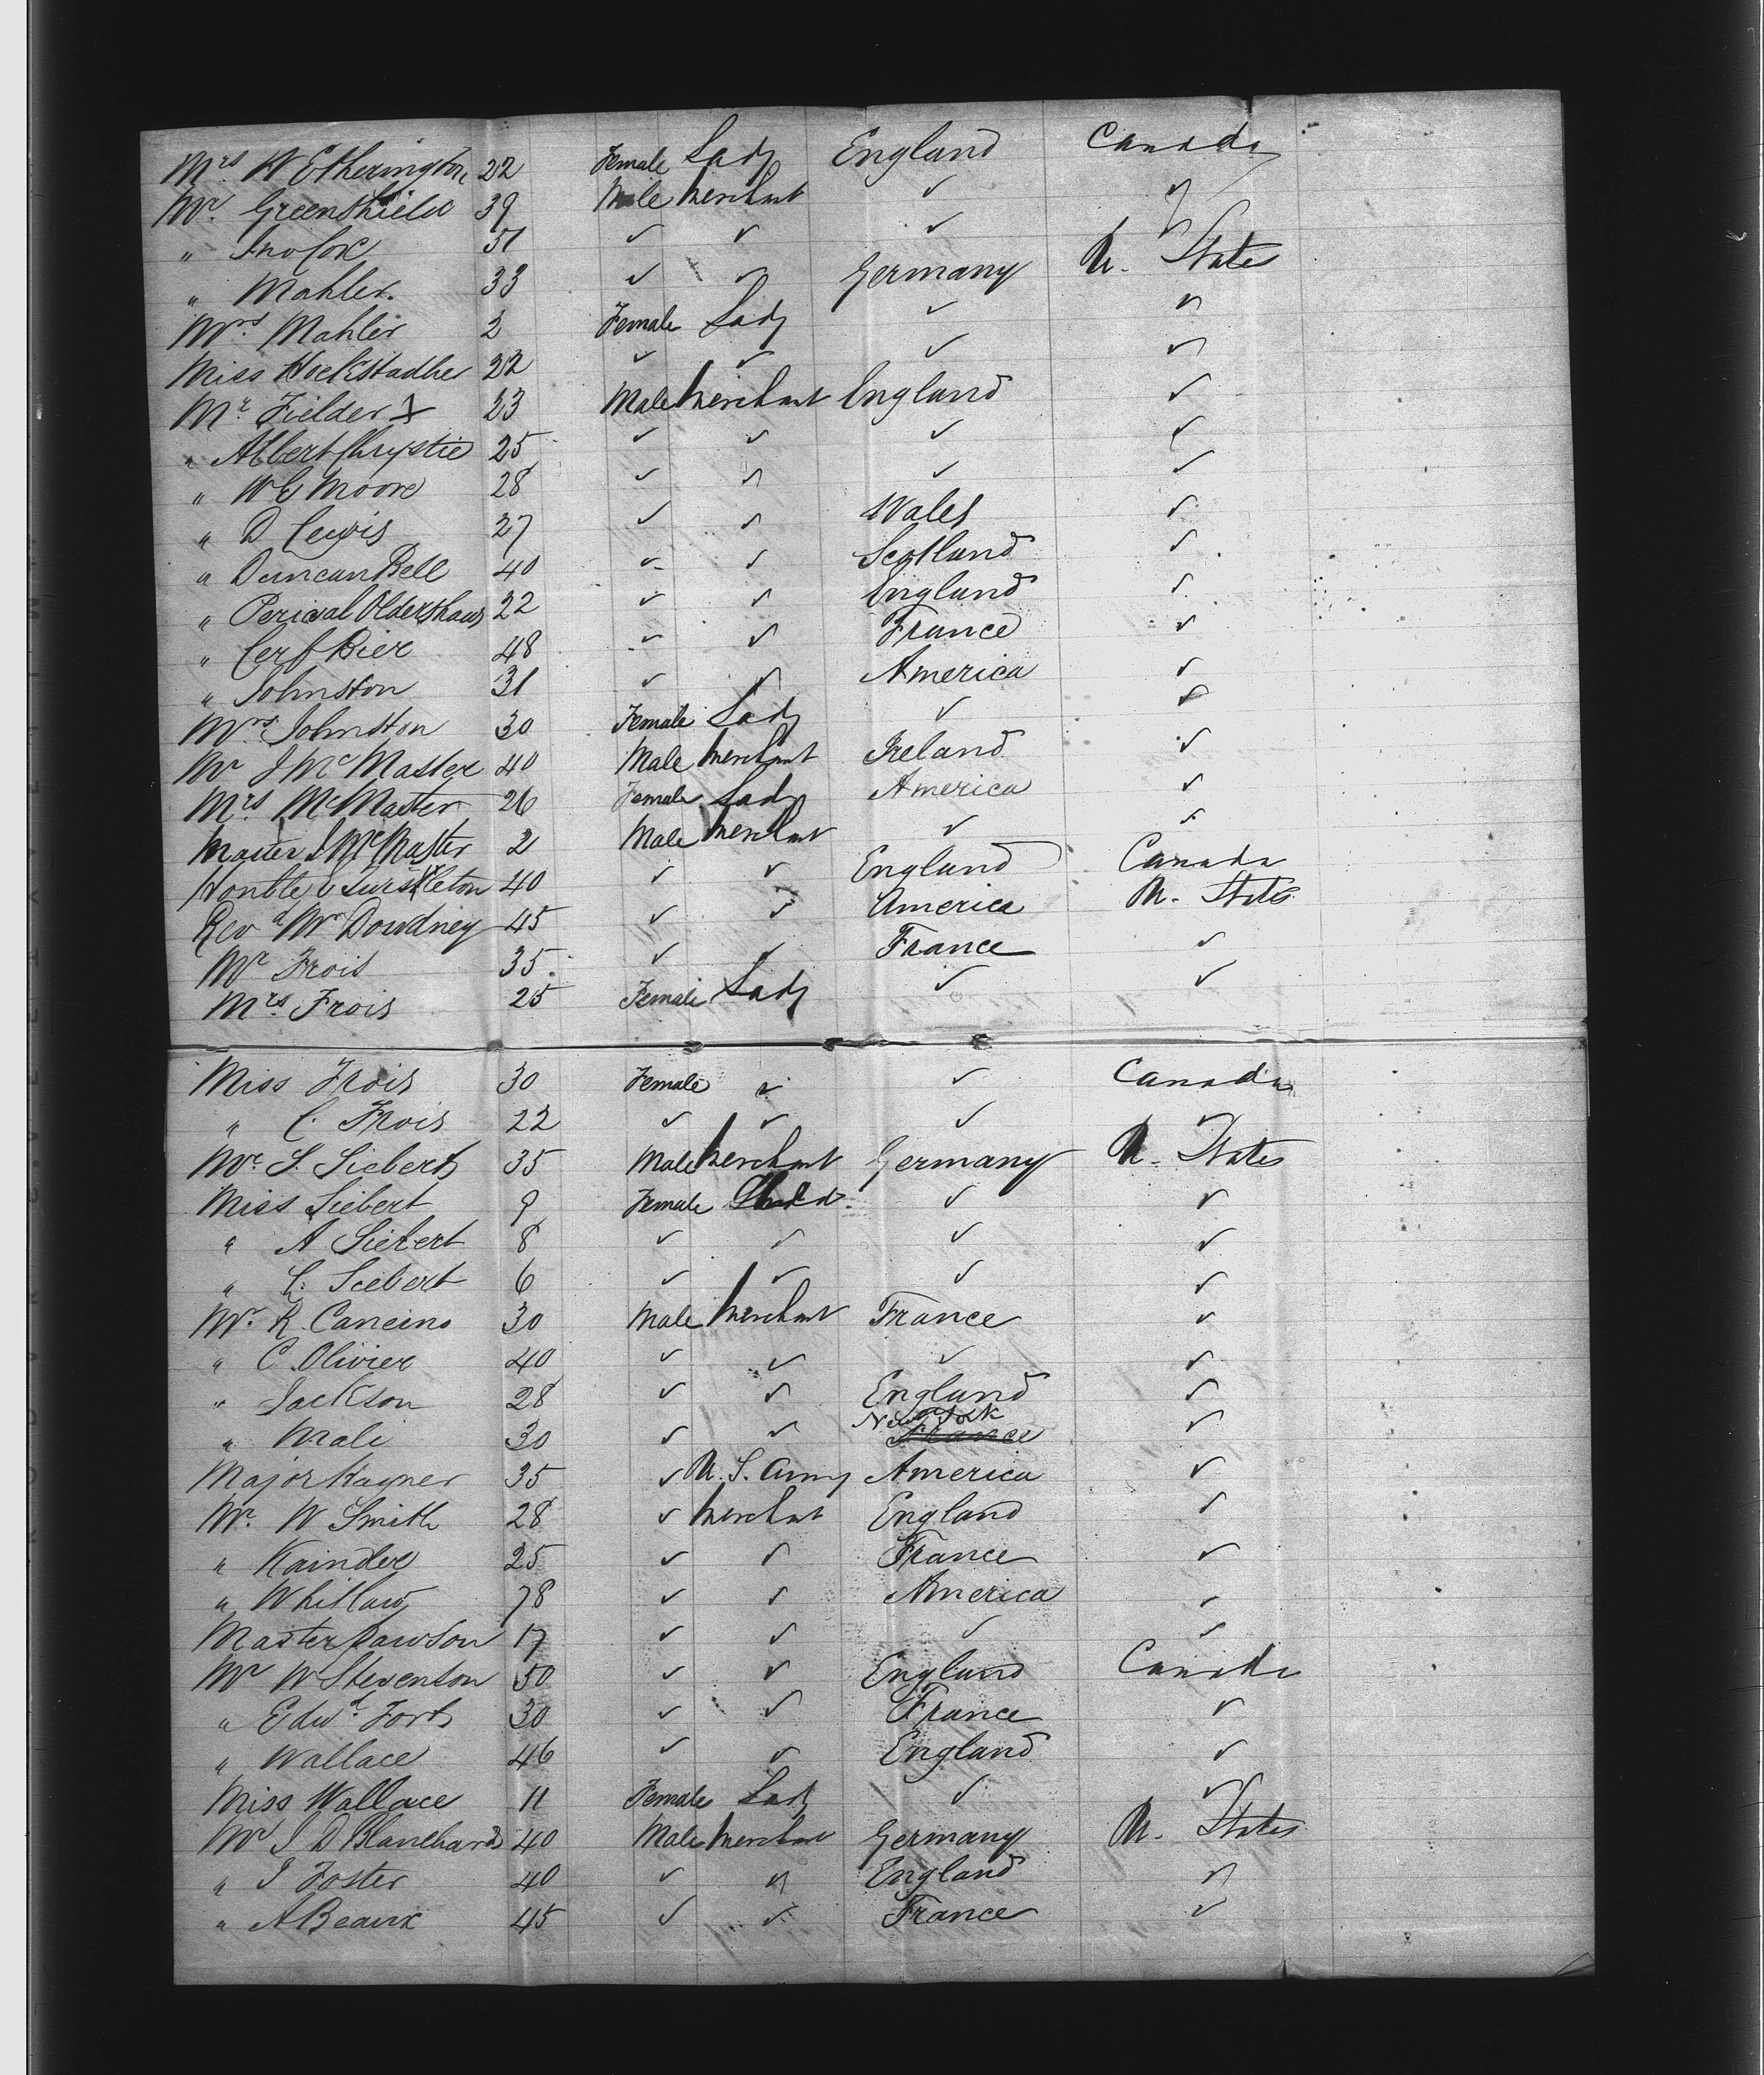 Mrs W Etherington 22 Female Lady England Canada
Mr. Greenshield 39 Male Merchant ✓ ✓
" Jno Cox 51 ✓ ✓ ✓ ✓
" Mahler. 33 ✓ ✓ Germany U. States
Mrs. Mahler 2 Female Lady ✓ ✓
Miss Hockstadher 22 ✓ ✓ ✓ ✓
Mr. Fielder 23 Male Merchant England ✓
" Albert Chrystie 25 ✓ ✓ ✓ ✓
" W E Moore 28 ✓ ✓ ✓ ✓
" D Lewis 27 ✓ ✓ Wales ✓
" Duncan Bell 40 ✓ ✓ Scotland ✓
" Percival Oldershaw 22 ✓ ✓ England ✓
" Cerf Bier 48 ✓ ✓ France ✓
" Johnston 31 ✓ ✓ America ✓
Mrs. Johnston 30 Female Lady ✓ ✓
Mr J McMaster 40 Male Merchant Ireland ✓
Mrs McMaster 26 Female Lady America ✓
Master J McMaster 2 Male Merchant ✓ ✓
Honble 40 ✓ ✓ England Canada
Revd Mr Dowdney 45 ✓ ✓ America U. States
Mr Frois 35 ✓ ✓ France ✓
Mrs. Frois 25 Female Lady ✓ ✓
Miss Frois 30 Female ✓ ✓ Canada
" C. Frois 22 ✓ ✓ ✓ ✓
Mr. S. Siebert 35 Male Merchant Germany U. States
Miss Siebert 9 Female ✓ ✓
" A Siebert 8 ✓ ✓ ✓ ✓
" L. Siebert 6 ✓ ✓ ✓ ✓
Mr. R. Cancino 30 Male Merchant France ✓
" C. Olivier 40 ✓ ✓ ✓ ✓
" Jackson 28 ✓ ✓ England ✓
" Mali 30 ✓ ✓ New York France ✓
Major Rayner 35 ✓ U. S. Army America ✓
Mr. W Smith 28 ✓ Merchant England ✓
" Kainder 25 ✓ ✓ France ✓
" Whitlaw 78 ✓ ✓ America ✓
Master Lawson 17 ✓ ✓ ✓ ✓
Mr W Stevenson 50 ✓ ✓ England Canada
" Edwd. Forts 30 ✓ ✓ France ✓
" Wallace 46 ✓ ✓ England ✓
Miss Wallace 11 Female Lady ✓ ✓
Mr J D Blanchard 40 Male Merchant Germany U. States
" J Foster 40 ✓ ✓ England ✓
" A Beaux 45 ✓ ✓ France ✓